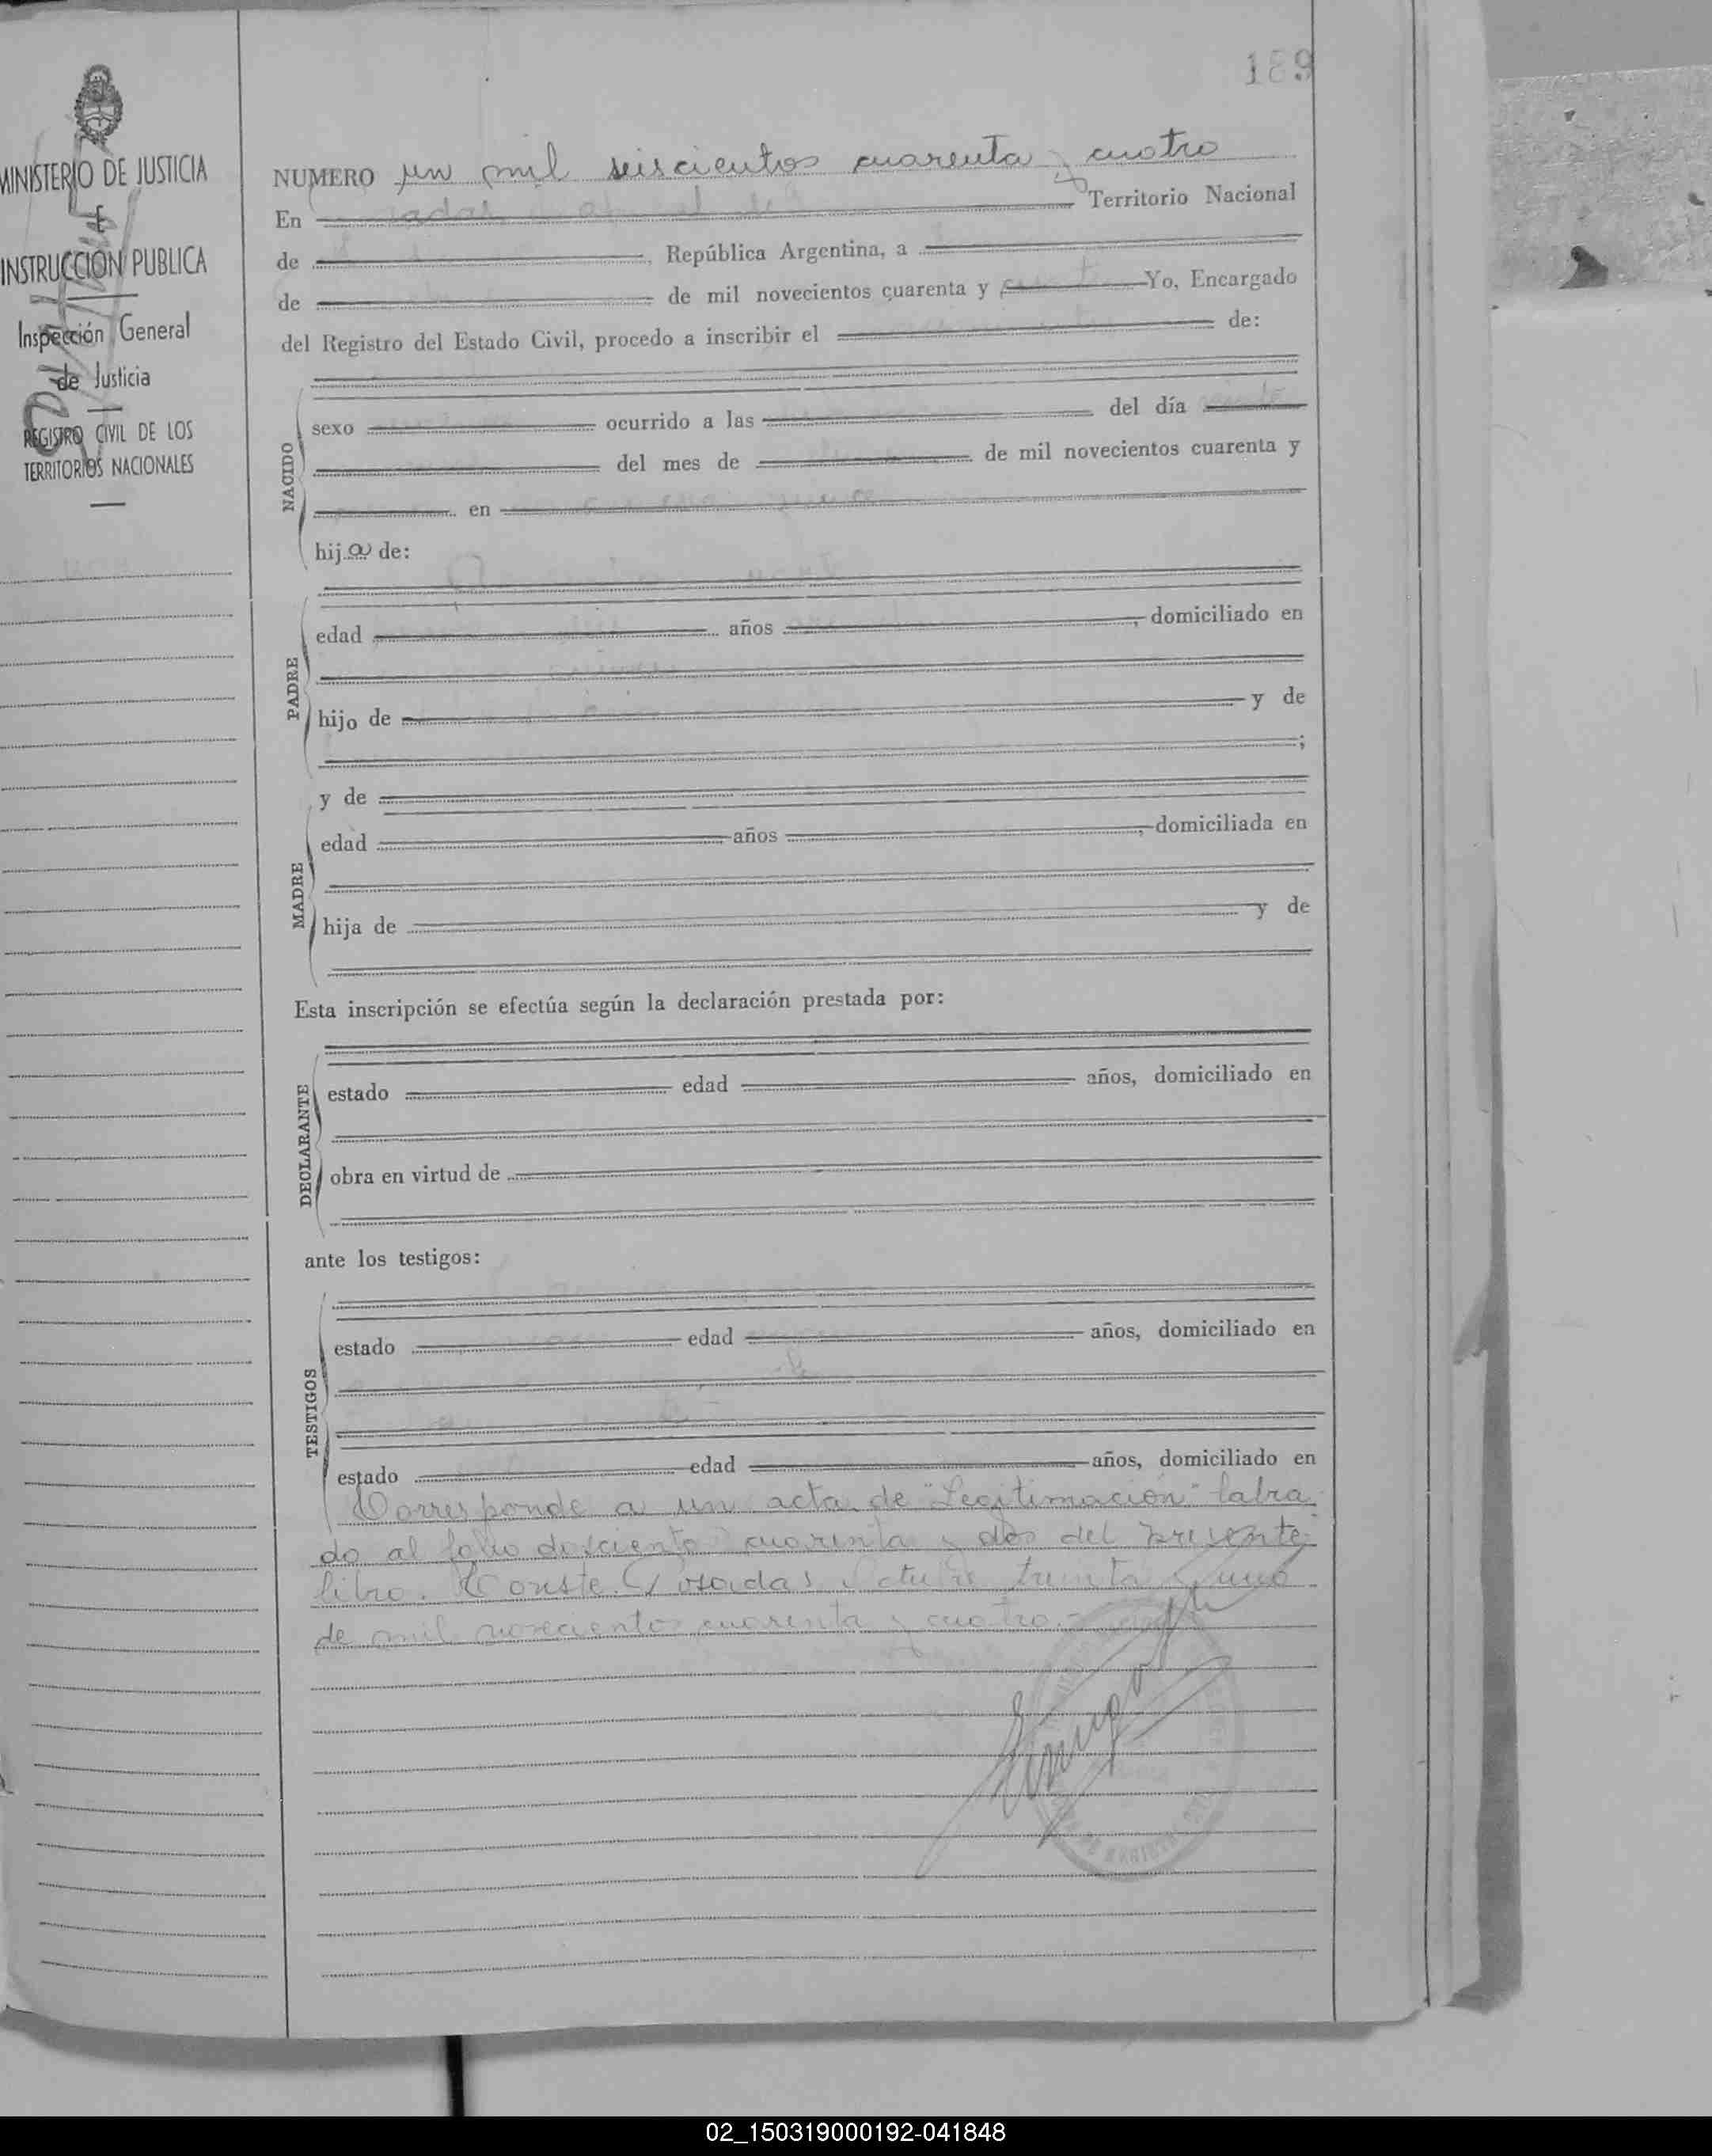 189
MINISTERIO DE JUSTICIA
E
INSTRUCCION PUBLICA
Inspección General
de Justicia
REGISTRO CIVIL DE LOS
TERRITORIOS NACIONALES
NUMERO un mil seiscientos cuarenta y cuatro
En Territorio Nacional
de , República Argentina, a
de de mil novecientos cuarenta y Yo, Encargado
del Registro del Estado Civil, procedo a inscribir el de:
NACIDO
sexo ocurrido a las del día
del mes de de mil novecientos cuarenta y
en
hija de:
PADRE
edad años , domiciliado en
hijo de y de
;
y de
MADRE
edad años , domiciliada en
hija de y de
Esta inscripción se efectúa según la declaración prestada por:
DECLARANTE
estado edad años, domiciliado en
obra en virtud de
ante los testigos:
TESTIGOS
estado edad años, domiciliado en
estado edad años, domiciliado en
Corresponde a un acta de "Legitimación" labra
do al folio doscientos cuarenta y dos del presente
libro. Conste. Posadas Octubre treinta y uno
de mil novecientos cuarenta y cuatro.-
02_150319000192-041848